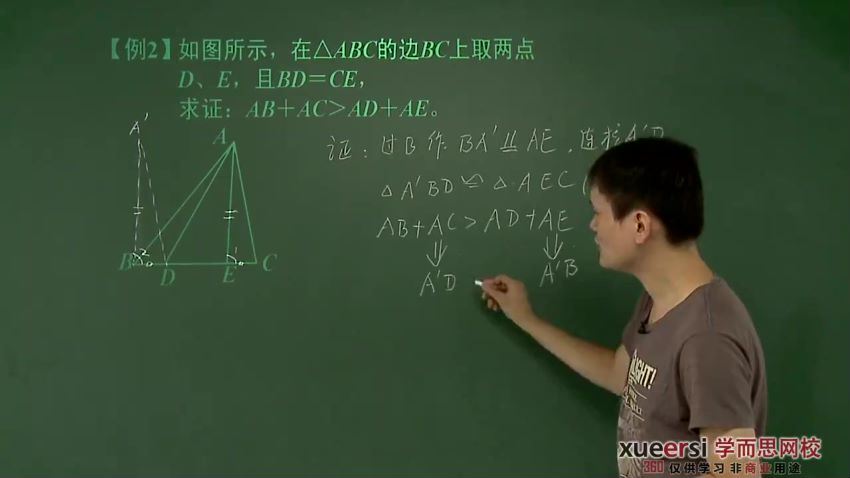 【例2】如图所示，在△ABC的边BC上取两点
D、E，且BD＝CE，
求证：AB＋AC＞AD＋AE。
证：过B作BA'⫫AE，连接A'D
△A'BD≌△AEC（
AB+AC>AD+AE
⇓ ⇓
A'D A'B
A'
A
B 2 D E 1 C
LIGHT!
xueersi 学而思网校
360 仅供学习 非商业用途